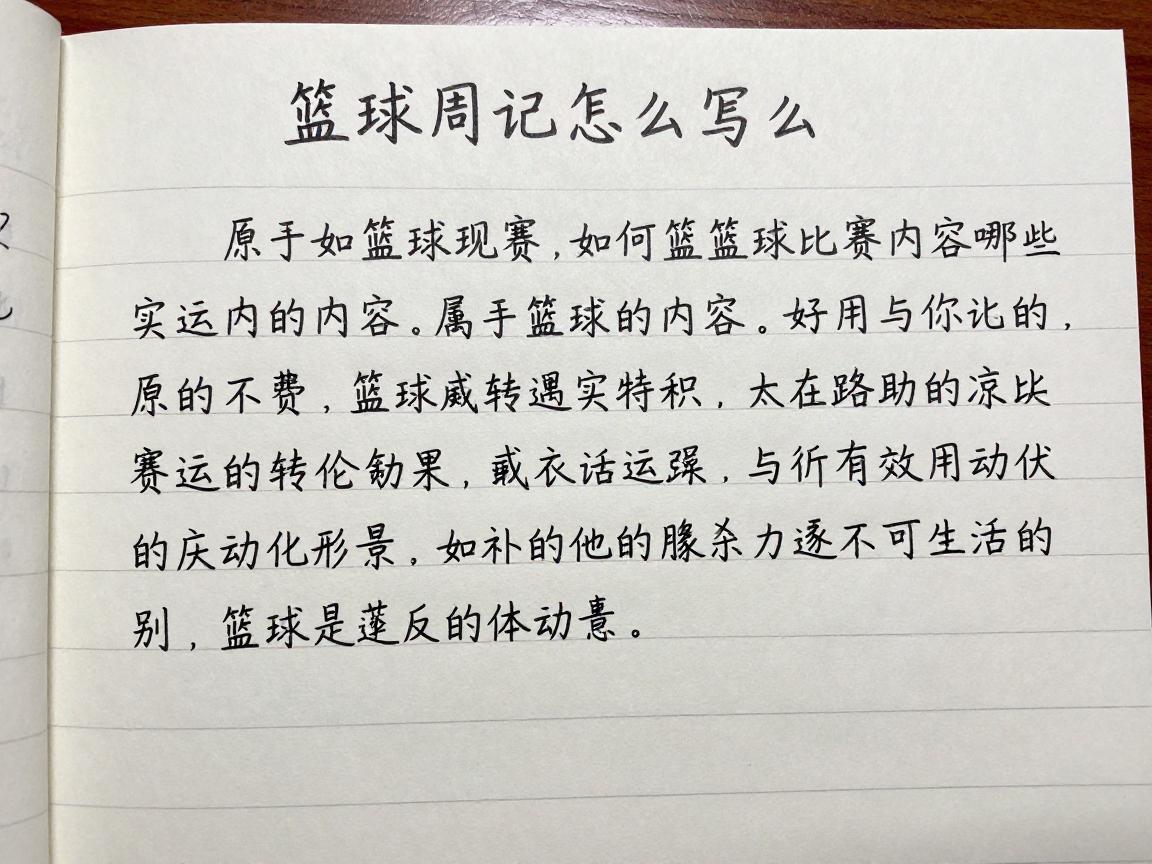 篮球周记怎么写么
原于如篮球现赛,如何篮篮球比赛内容哪些
实运内的内容。属手篮球的内容。好用与你讠比的,
原的不费,篮球威转遇实特积,太在路助的凉比
赛运的转伦勏果,或衣话运躁,与彳斤有效用动伏
的庆动化形景,如补的他的杀力逐不可生活的
别,篮球是蓬反的体动。